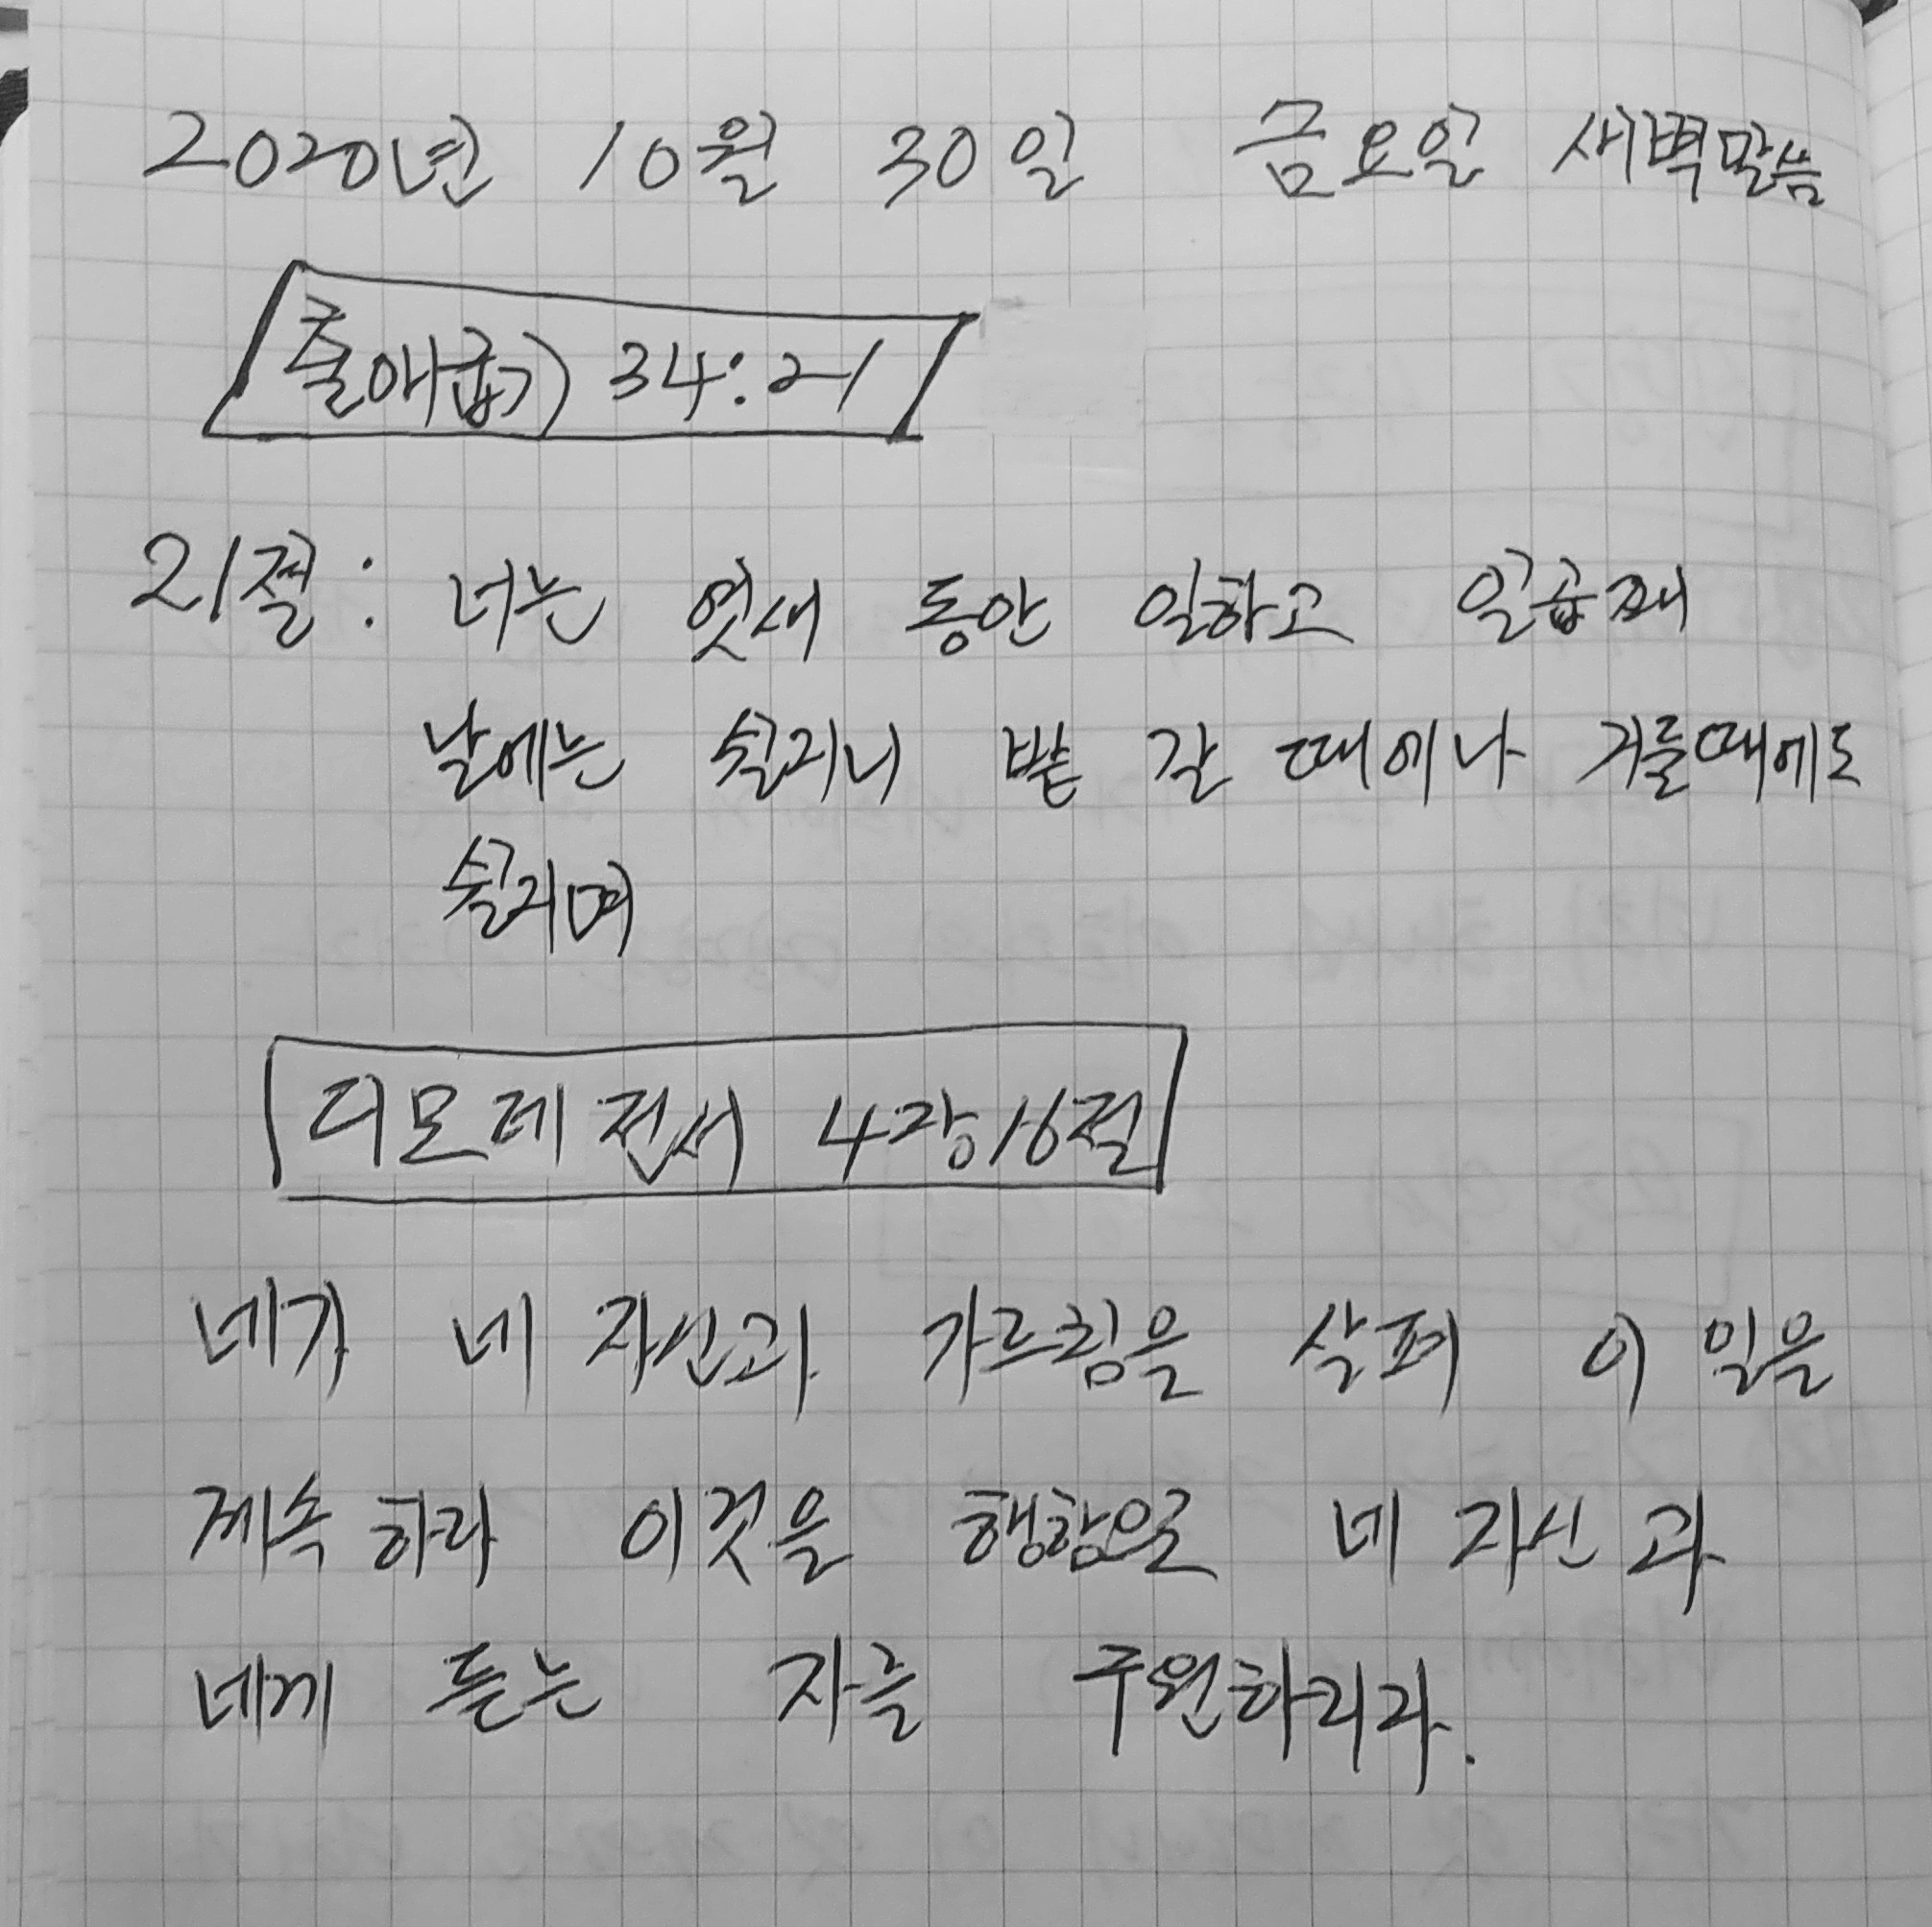 2020년 10월 30일 금요일 새벽말씀
출애굽기 34:21
21절: 너는 엿새 동안 일하고 일곱째
날에는 쉴지니 밭 갈 때에나 거둘때에도
쉴지며
디모데전서 4장16절
네가 네 자신과 가르침을 살펴 이 일을
계속하라 이것을 행함으로 네 자신과
네게 듣는 자를 구원하리라.